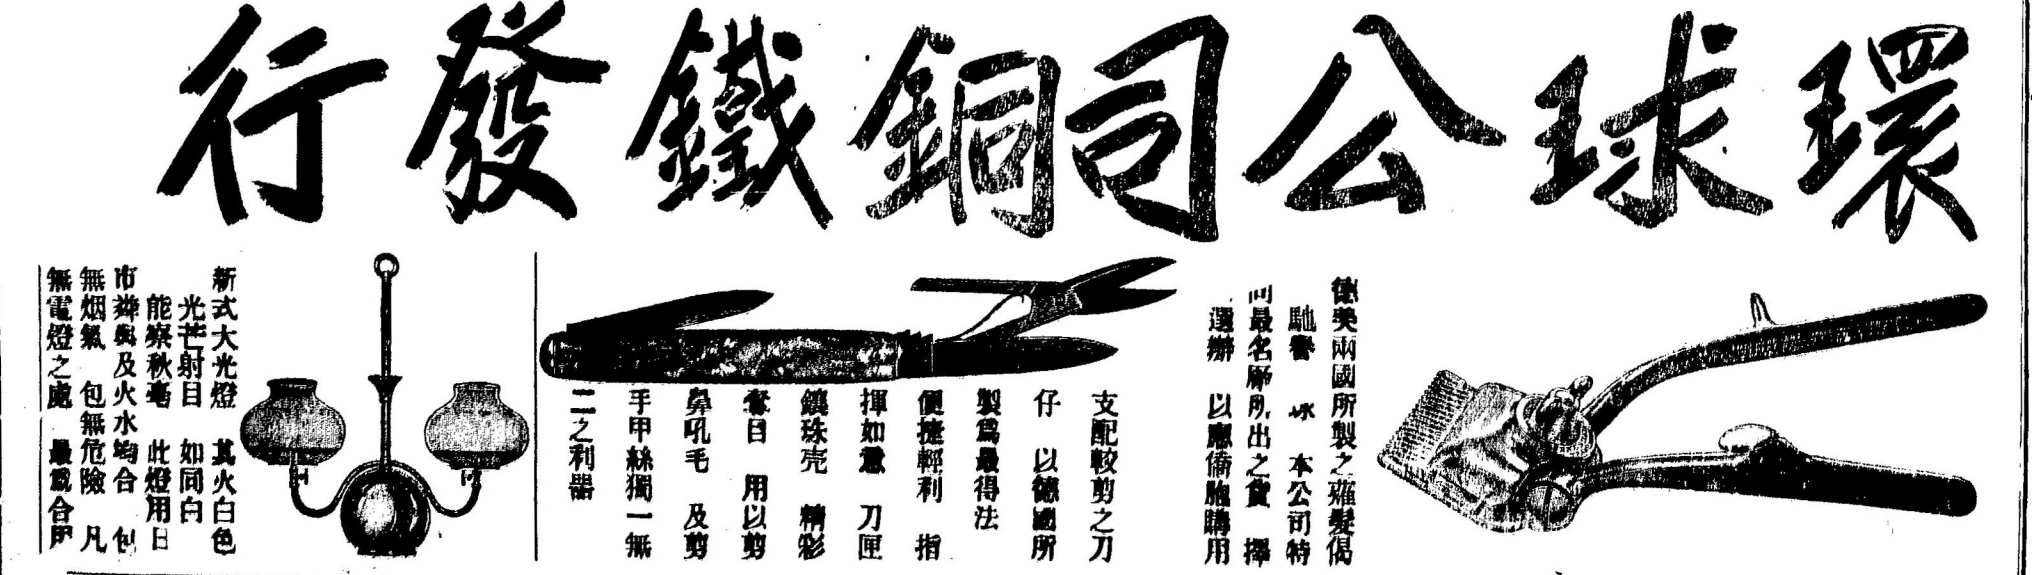 環球公司銅鐵發行
德美兩國所製之薙髮偈
馳譽 球 本公司特
向最名厰所出之貨 擇
選辦 以應僑胞購用
支配較剪之刀
仔 以德國所
製爲最得法
便捷輕利 指
揮如意 刀匣
鑲珠壳 精彩
奪目 用以剪
鼻吼毛 及剪
手甲絲獨一無
二之利器
新式大光燈 其火白色
光芒射目 如同白
能察秋毫 此燈用日
市 與及火水 合
無烟氣 包無危險 凡
無電燈之處 最 合用